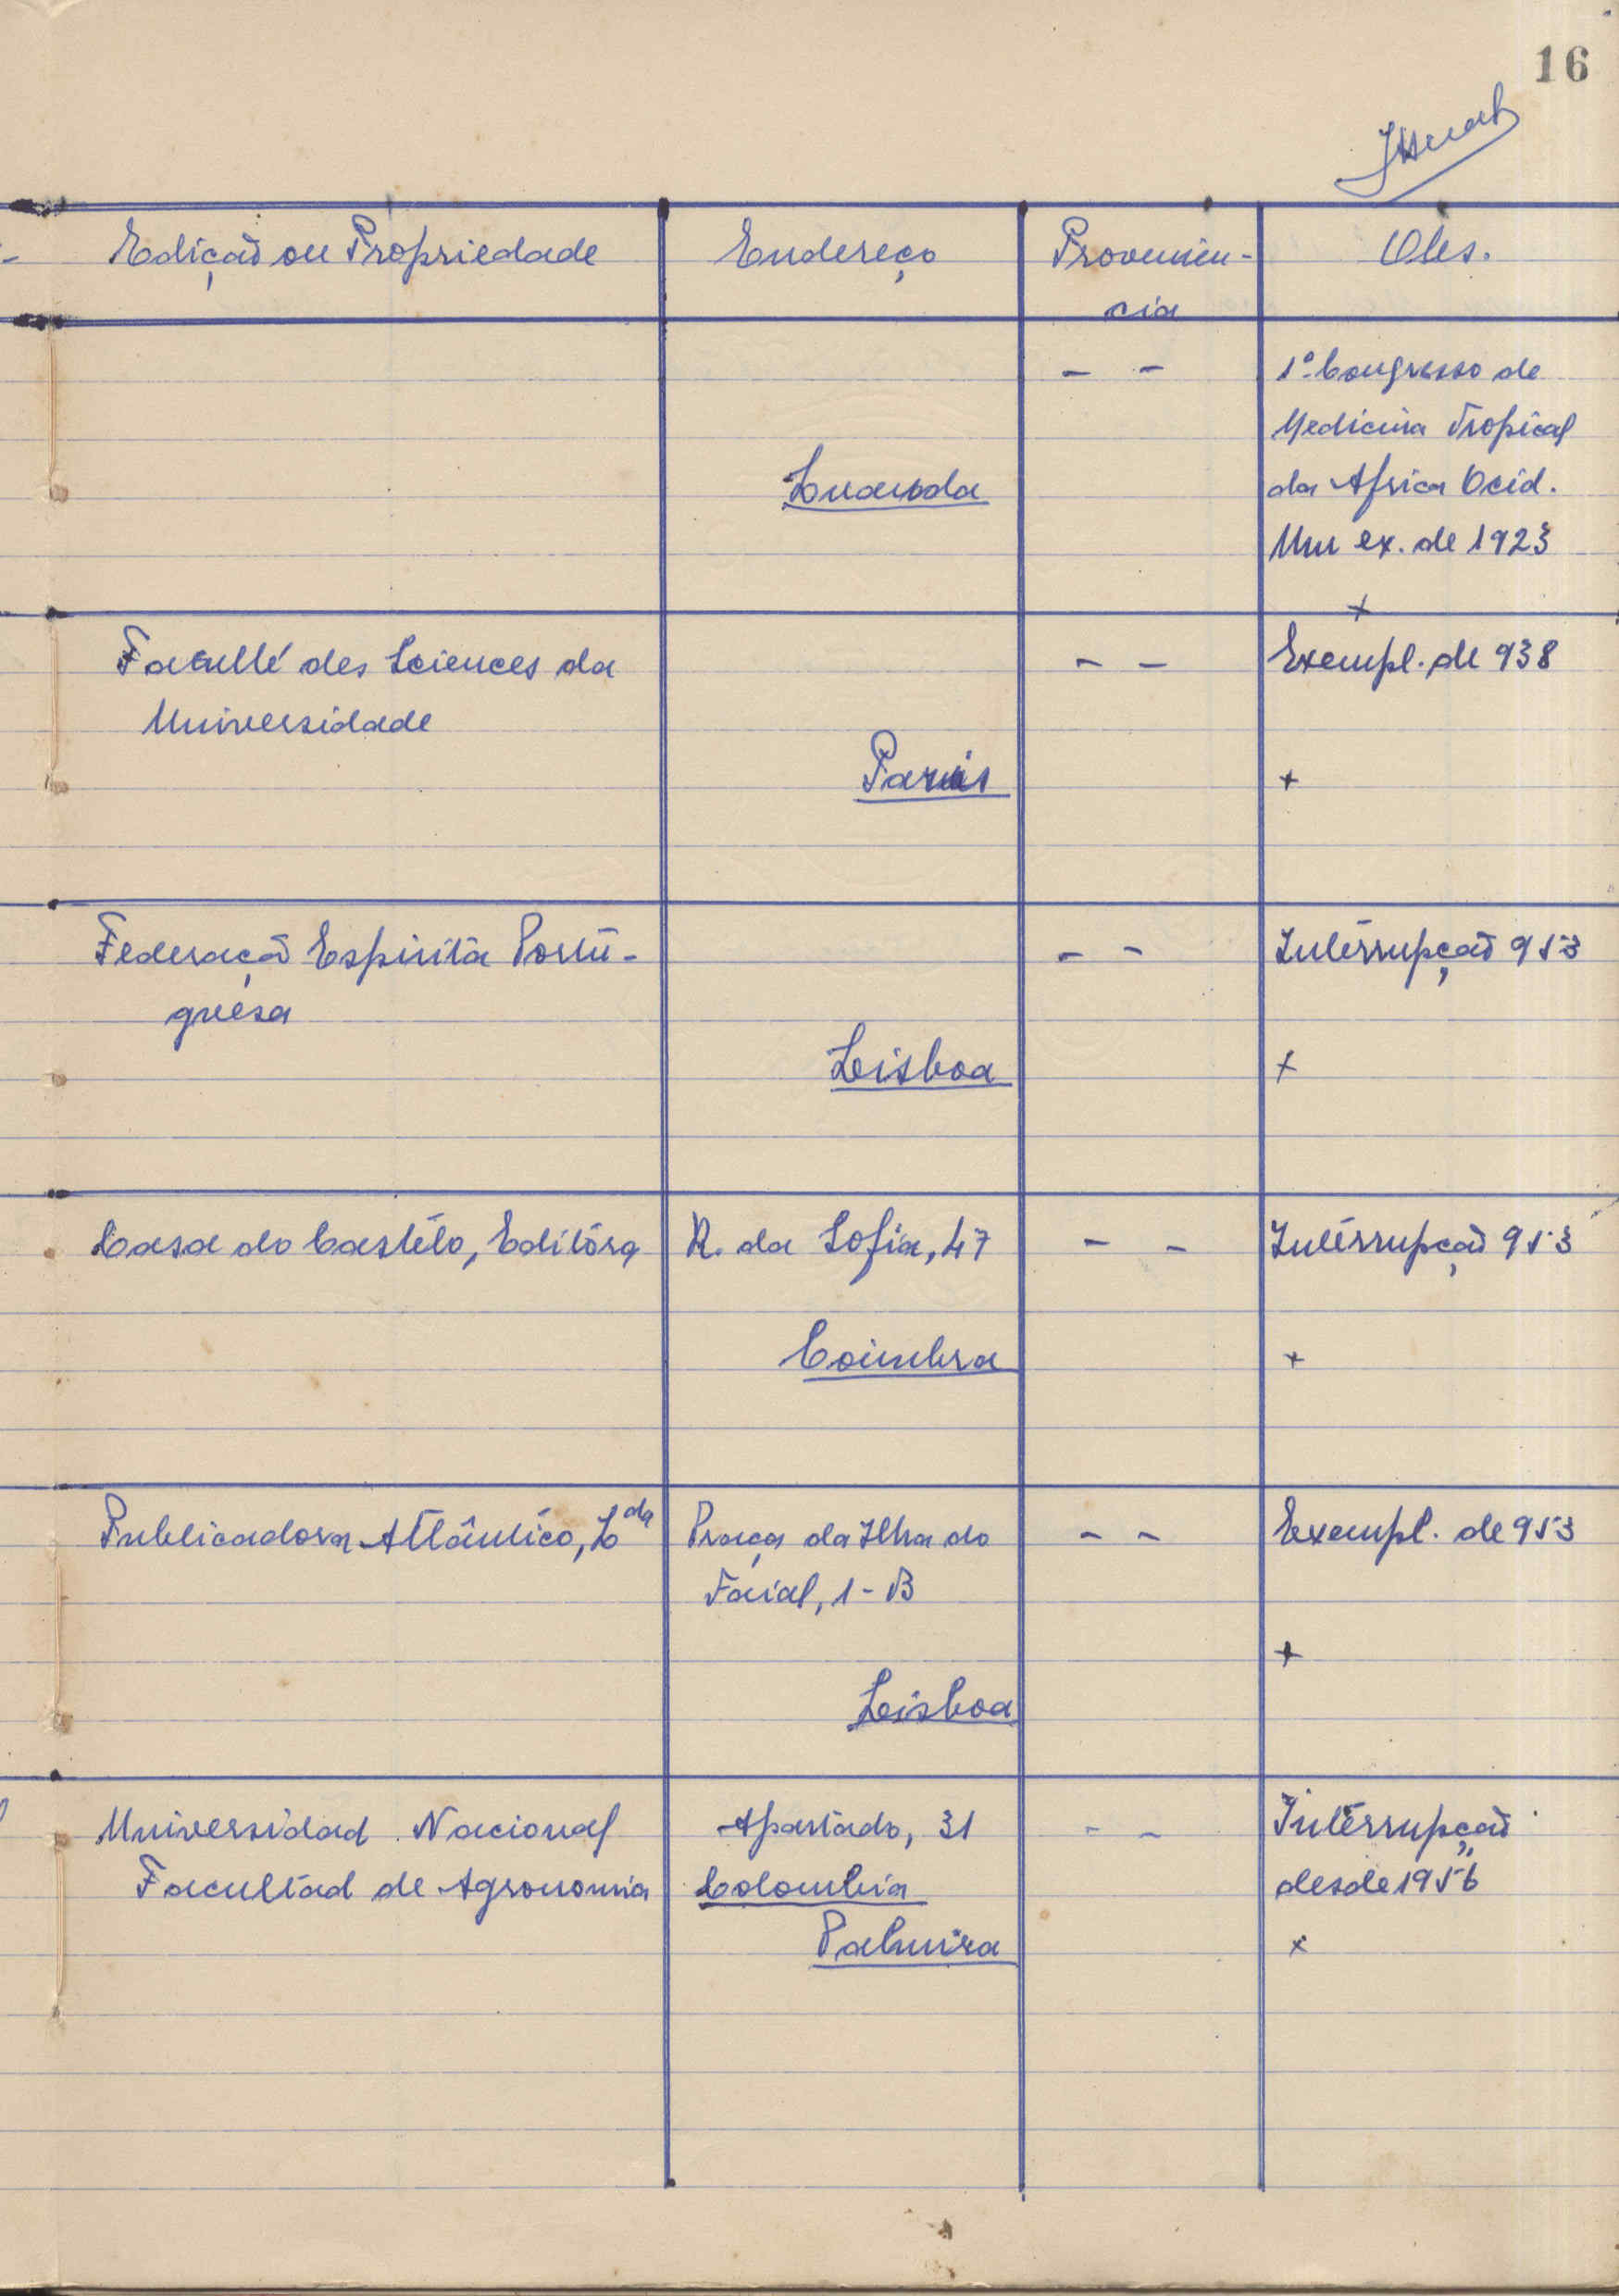 16
Edição ou Propriedade Endereço Proveniên- Obs.
cia
- - 1º Congresso de
Medicina Tropical
Luanda da Africa Ocid.
Um ex. de 1923
+
Faculté des Sciences da - - Exempl. de 938
Universidade
Paris +
Federação Espirita Portu- - - Interrupção 953
guêsa
Lisboa +
Casa do Castêlo, Editôra R. da Sofia, 47 - - Interrupção 953
Coimbra +
Publicadora Atlântico, Lda Praça da Ilha do - - Exempl. de 953
Faial, 1-B
+
Lisboa
Universidad Nacional Apartado, 31 - - Interrupção
Facultad de Agronomia Colombia desde 1956
Palmira x